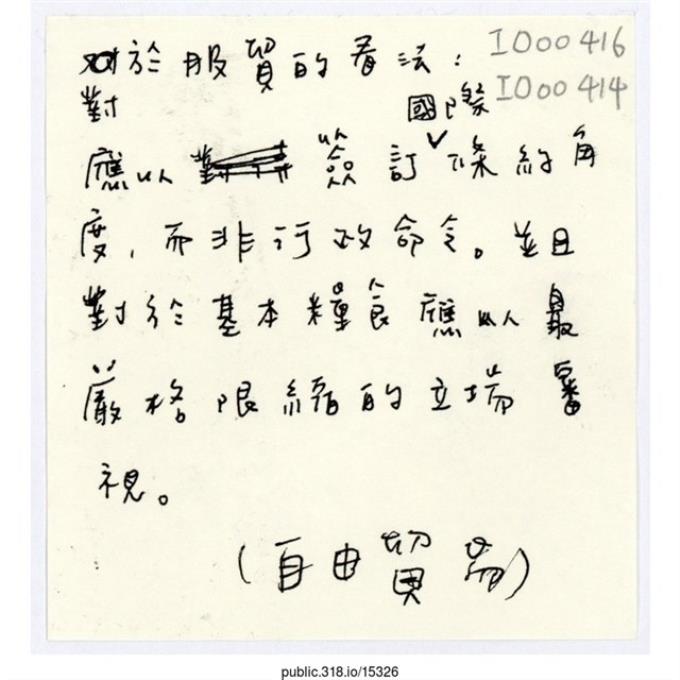 對於服貿的看法:
I000416
I000414
對
國際
應以 簽訂條約角
度,而非行政命令。並且
對於基本糧食應以最
嚴格限縮的立場審
視。
(自由貿易)
public.318.io/15326